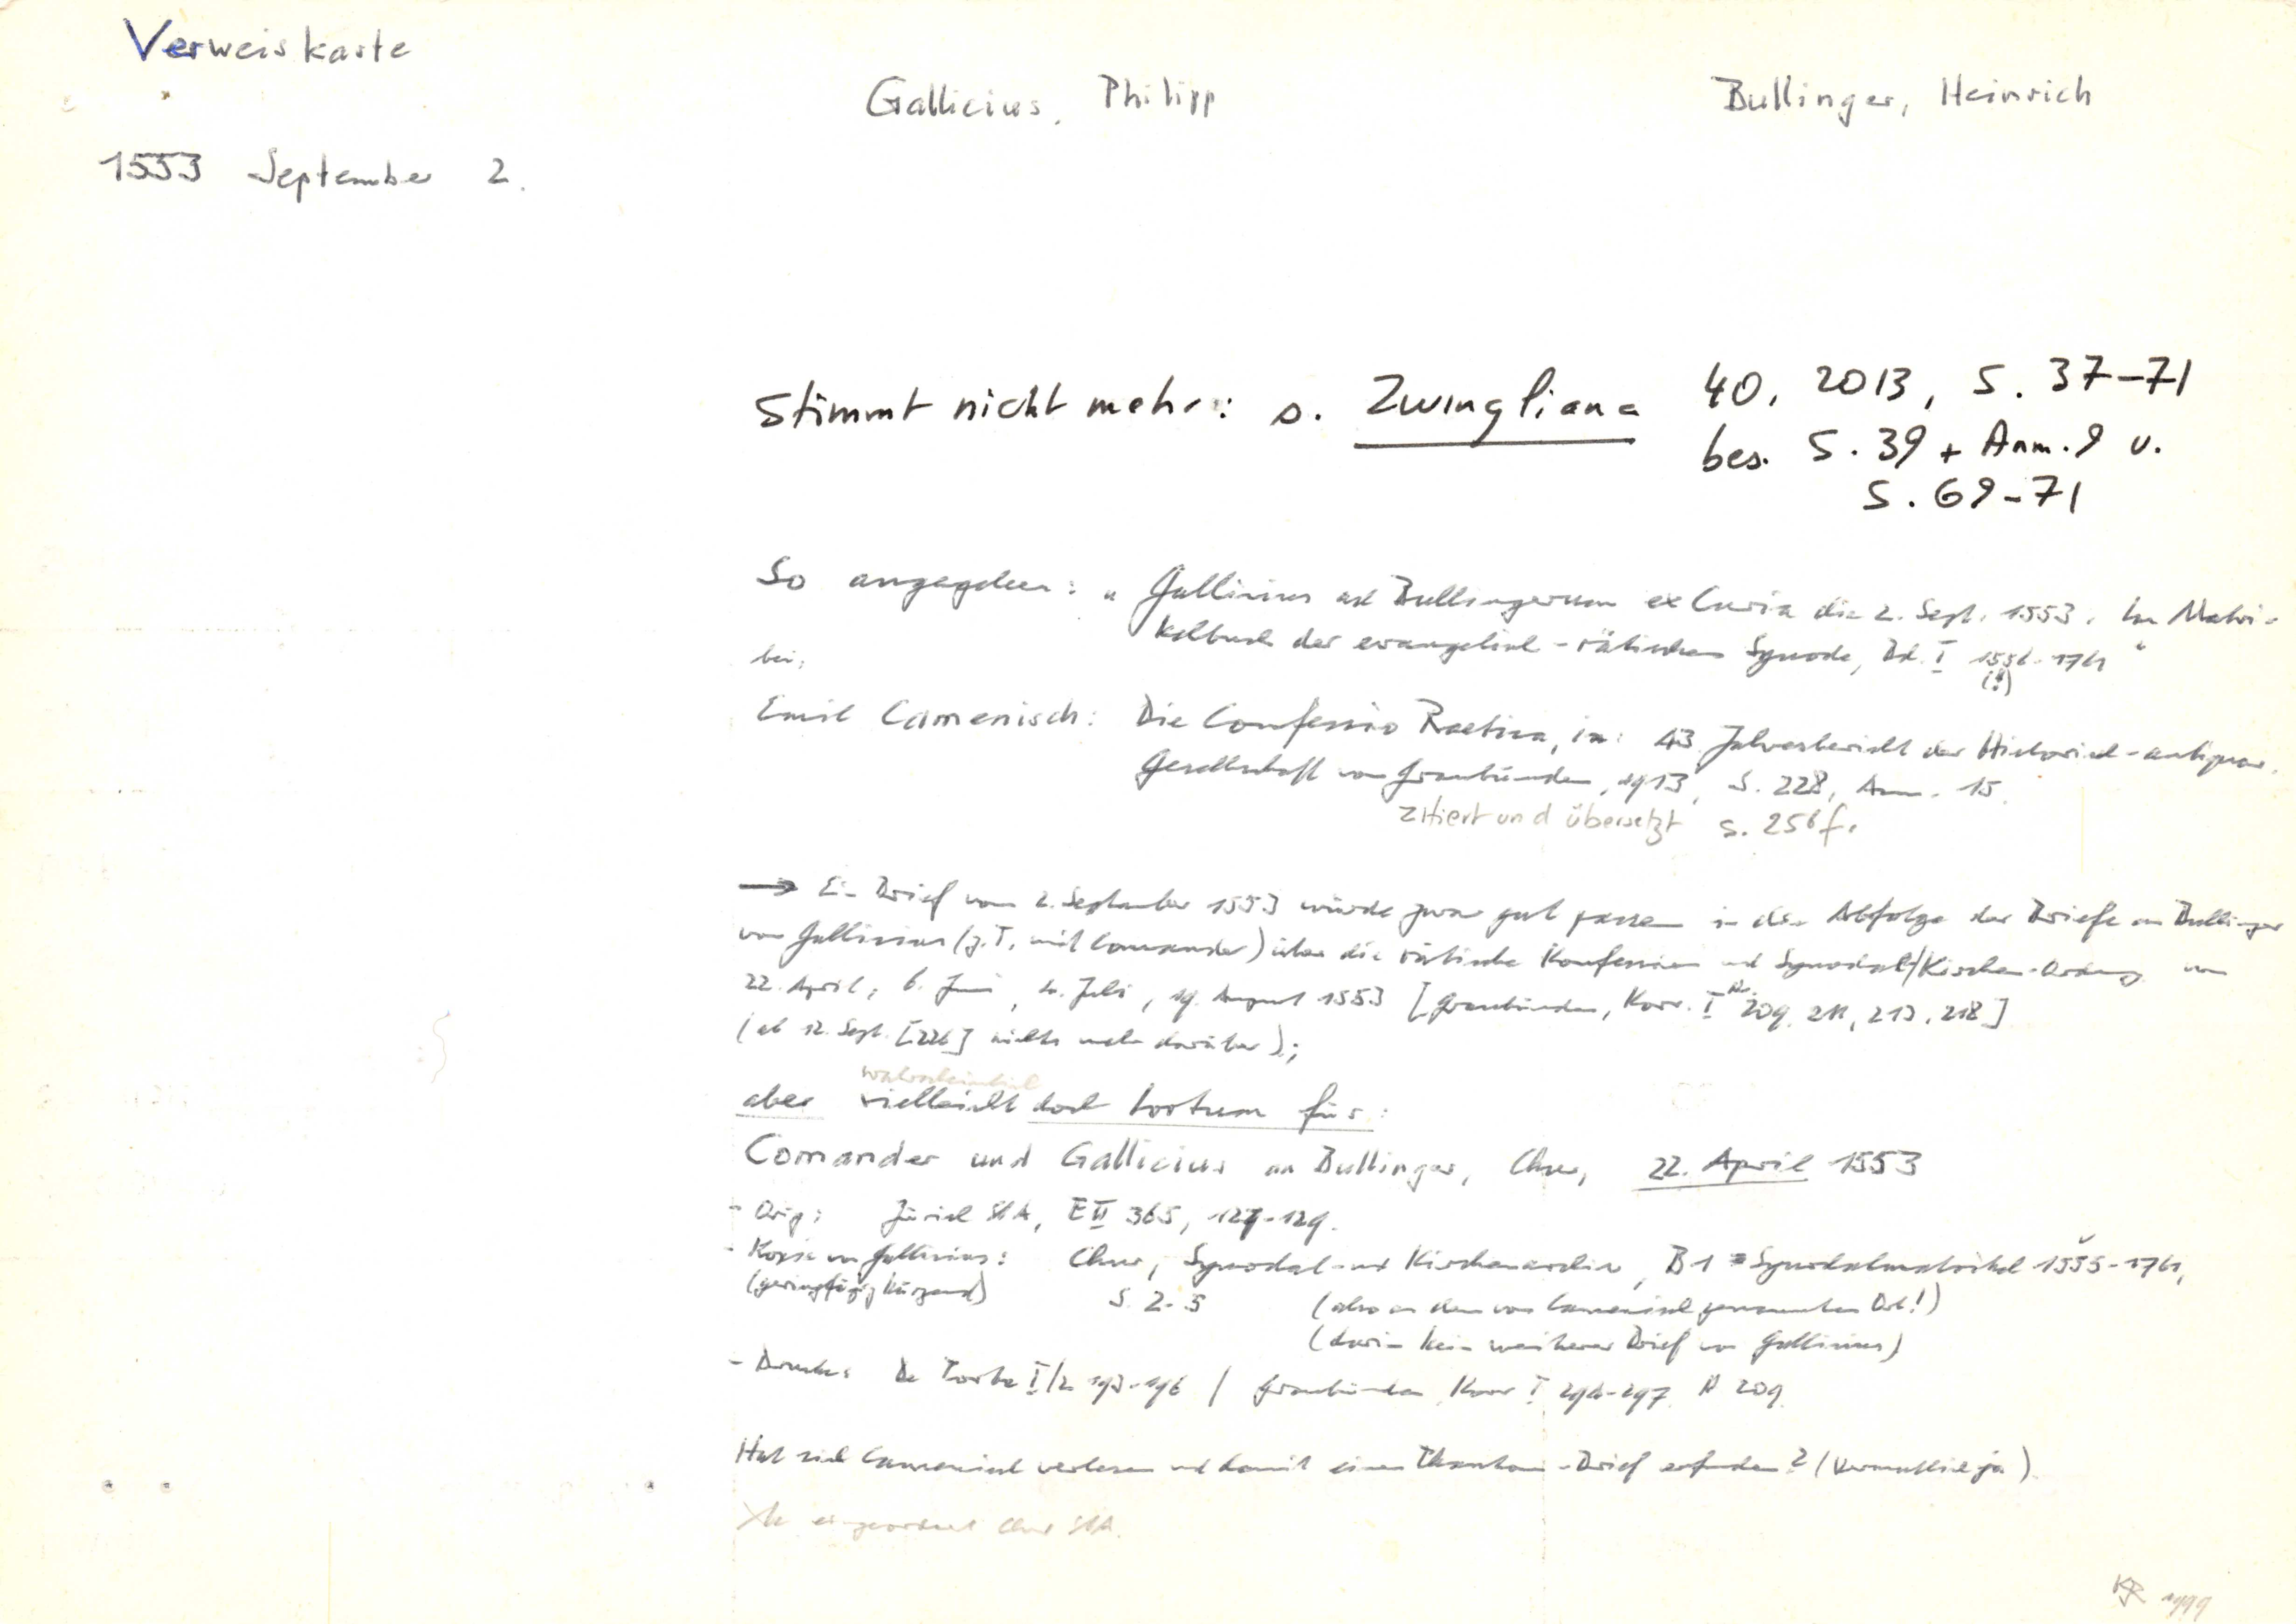 Verweiskarte
Gallicius, Philipp
Bullinger, Heinrich
1553 September 2.
Stimmt nicht mehr: s. Zwingliana 40, 2013, S. 37-71
bes. S. 39 + Anm. 9 u.
S. 69-71
So angegeben: "Gallicius ad Bullingerum ex Curia die 2. Sept. 1553. Im Matri-
kelbuch der evangelisch-rätischen Synode, Bd. I 1556-1761"
(!)
bei:
Emil Camenisch: Die Confessio Raetica, in: 43. Jahresbericht der Historisch-antiquar.
Gesellschaft von Graubünden, 1913, S. 228, Anm. 15.
zitiert und übersetzt S. 256f.
→ Ein Brief vom 2. September 1553 würde zwar gut passen in die Abfolge der Briefe an Bullinger
von Gallicius (z.T. mit Comander) über die rätische Konfession und Synodal-/Kirchen-Ordnung vom
22. April, 6. Juni, Juli, 19. August 1553 [Graubünden, Korr. I Nr. 209, 211, 213, 218]
(ab 12. Sept. [226] nichts mehr darüber);
wahrscheinlich
aber vielleicht doch Irrtum für:
Comander und Gallicius an Bullinger, Chur, 22. April 1553
- Orig: Zürich StA, E II 365, 127-129.
- Kopie von Gallicius: Chur, Synodal- und Kirchenarchiv, B1 = Synodalmatrikel 1555-1761,
(geringfügig kürzend) S. 2-5 (also an dem von Camenisch genannten Ort!)
(darin kein weiterer Brief von Gallicius)
- Druck: De Porta I/2 193-196 / Graubünden, Korr I 294-297 N 209
Hat sich Camenisch verlesen und damit einen Phantom-Brief erfunden? (vermutlich ja).
eingeordnet Chur StA.
KJR 1999